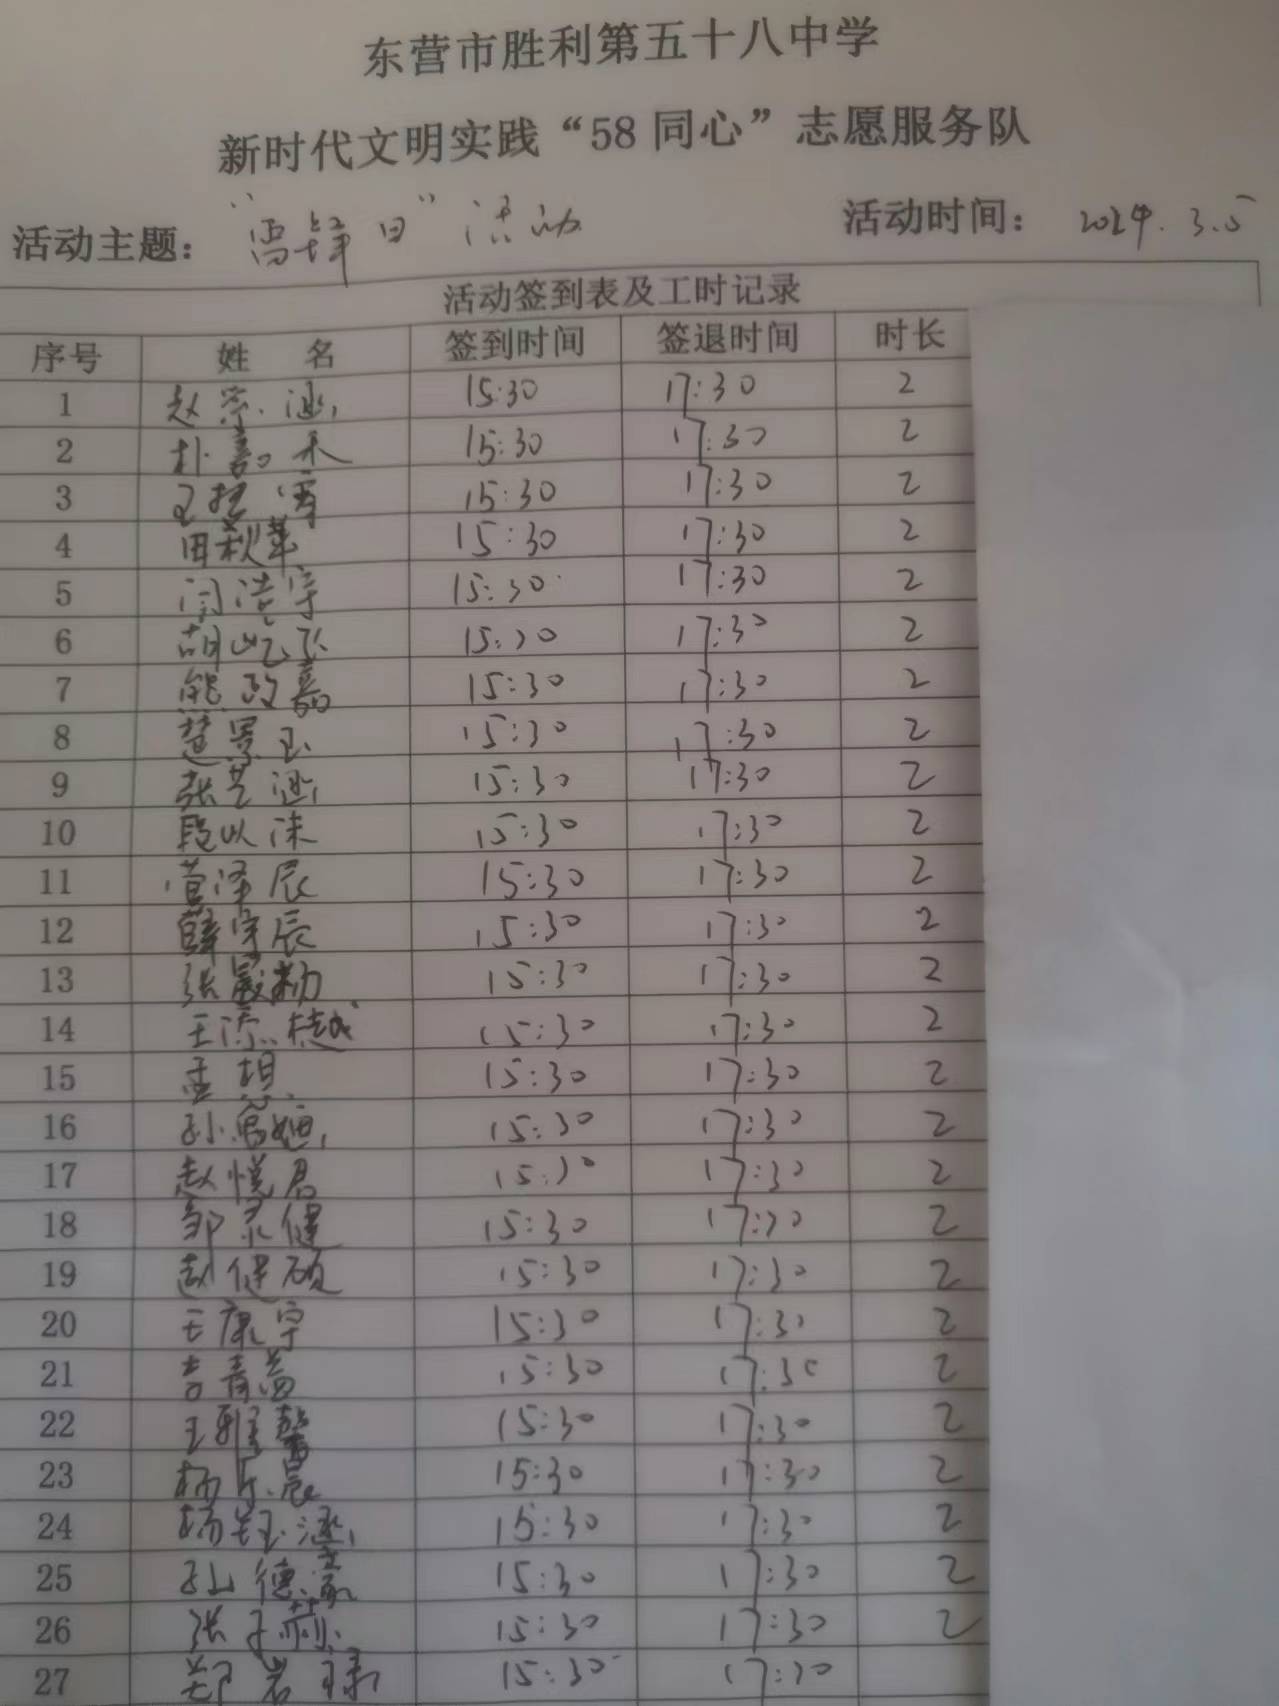 东营市胜利第五十八中学
新时代文明实践“58同心”志愿服务队
活动主题： “雷锋日”活动 活动时间： 2024.3.5
活动签到表及工时记录
序号 姓 名 签到时间 签退时间 时长
1 赵崇涵 15:30 17:30 2
2 朴嘉禾 15:30 17:30 2
3 王 15:30 17:30 2
4 田秋苇 15:30 17:30 2
5 闫浩宇 15:30 17:30 2
6 胡屹 15:30 17:30 2
7 熊政嘉 15:30 17:30 2
8 楚景玉 15:30 17:30 2
9 张艺涵 15:30 17:30 2
10 段以沫 15:30 17:30 2
11 菅泽辰 15:30 17:30 2
12 薛宇辰 15:30 17:30 2
13 张 15:30 17:30 2
14 王添樾 15:30 17:30 2
15 孟想 15:30 17:30 2
16 孙 15:30 17:30 2
17 赵悦君 15:30 17:30 2
18 邹 健 15:30 17:30 2
19 赵健硕 15:30 17:30 2
20 王康宇 15:30 17:30 2
21 青 15:30 17:30 2
22 王雅馨 15:30 17:30 2
23 杨乐晨 15:30 17:30 2
24 杨钰涵 15:30 17:30 2
25 孙德豪 15:30 17:30 2
26 张子 15:30 17:30 2
27 郑岩 15:30 17:30